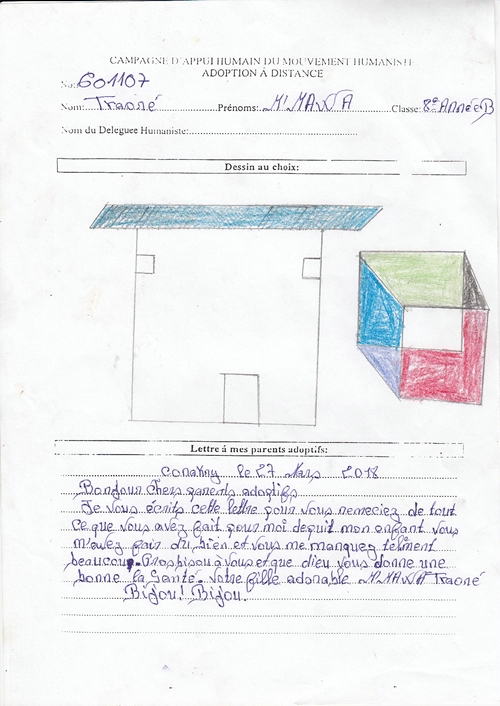 CAMPAGNE D'APPUI HUMAIN DU MOUVEMENT HUMANISTE
ADOPTION À DISTANCE
No: 601107
Nom: Traoré Prénoms: M'MAWA Classe: 8e Année B
Nom du Deleguee Humaniste:
Dessin au choix:
Lettre à mes parents adoptifs:
Conakry le 27 Mars 2018
Bonjour chers parents adoptifs
Je vous écrits cette lettre pour vous remeciez de tout
ce que vous avez fait pour moi depuit mon enfant vous
m'avez fair du bien et vous me manquez telment
beaucoup. Gros bisou à vous et que dieu vous donne une
bonne la Santé. Votre fille adorable M'MAWA Traoré
Bijou! Bijou.